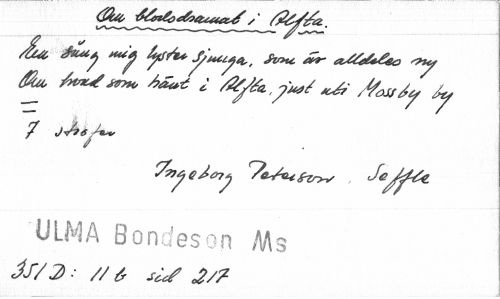 Om blodsdramat i Alfta.
En sång mig lyster sjunga, som är alldeles ny
Om hvad som hänt i Alfta, just uti Mossby by
=
7 strofer
Ingeborg Peterson, Säffle
ULMA Bondeson Ms
351 D: 11 b sid 217